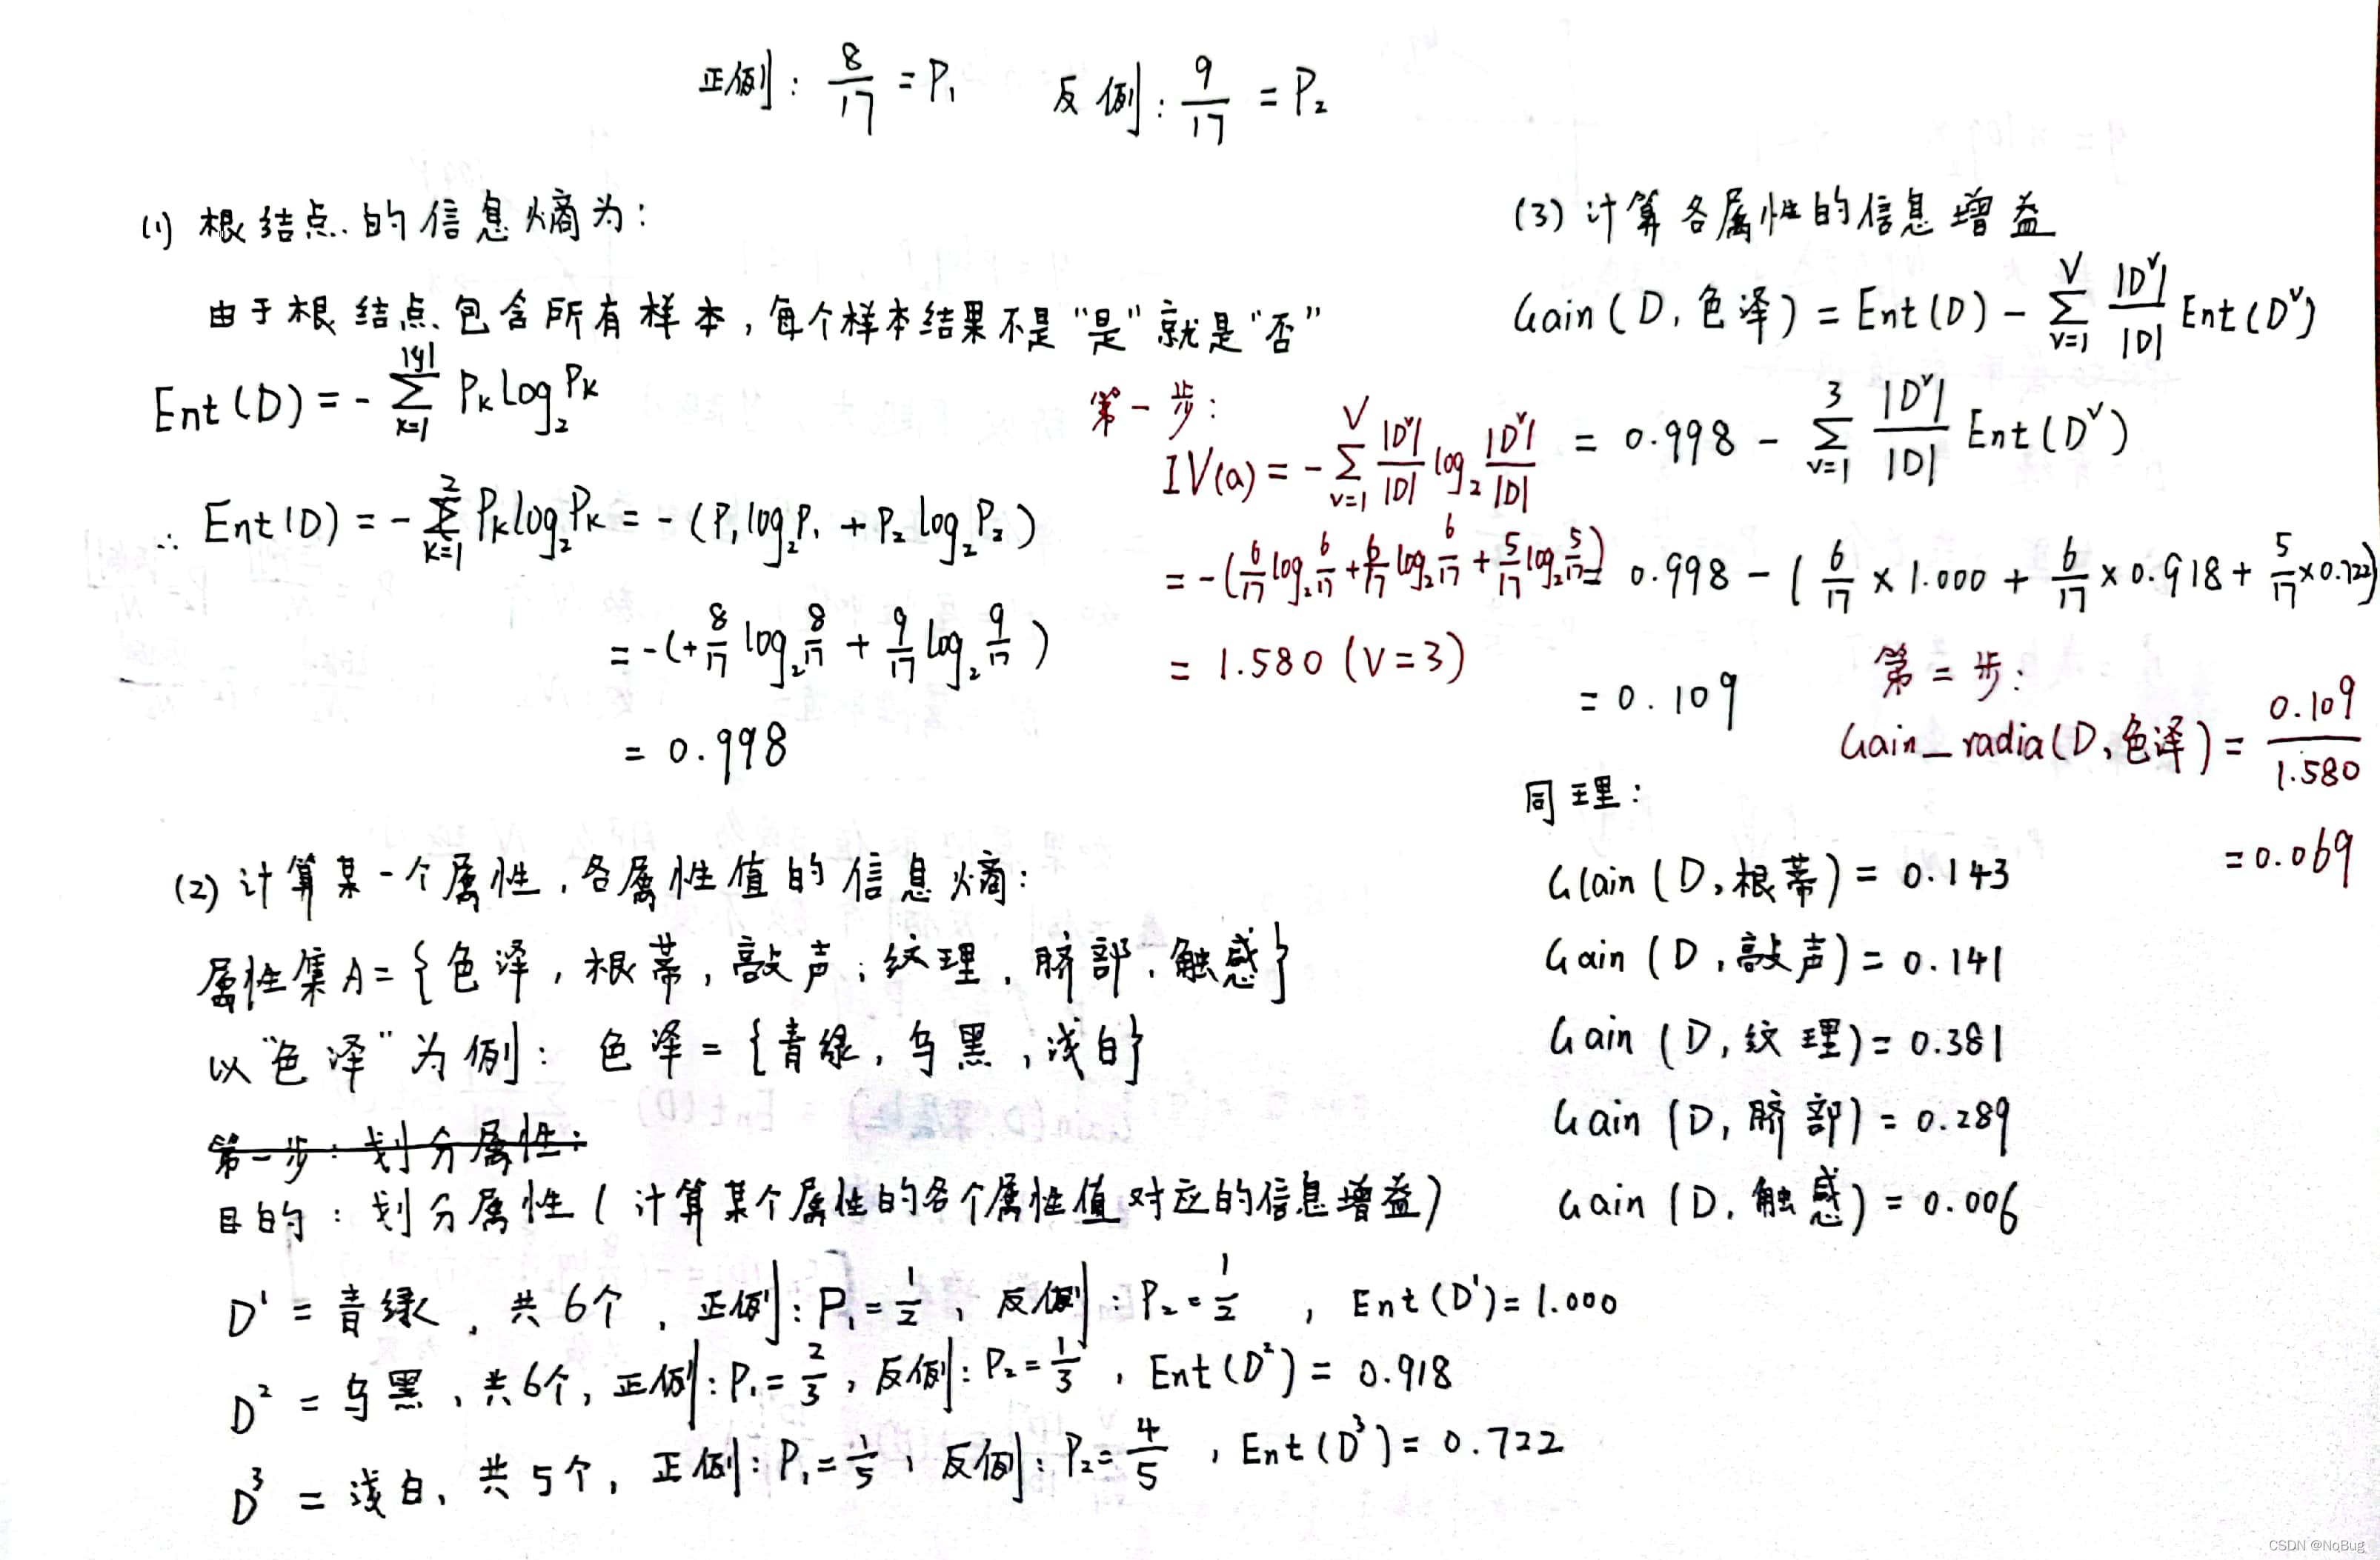 正例: 8/17 = P₁ 反例: 9/17 = P₂
(1) 根结点的信息熵为:
由于根结点包含所有样本,每个样本结果不是"是"就是"否"
Ent(D) = - ∑_{k=1}^{|y|} P_k log₂ P_k
∴ Ent(D) = - ∑_{k=1}^{2} P_k log₂ P_k = - (P₁ log₂ P₁ + P₂ log₂ P₂)
= -(+ 8/17 log₂ 8/17 + 9/17 log₂ 9/17)
= 0.998
(2) 计算某一个属性,各属性值的信息熵:
属性集A = {色泽,根蒂,敲声,纹理,脐部,触感}
以"色泽"为例: 色泽 = {青绿,乌黑,浅白}
第一步:划分属性:
目的:划分属性(计算某个属性的各个属性值对应的信息增益)
D¹ = 青绿,共6个,正例:P₁ = 1/2,反例:P₂ = 1/2,Ent(D¹) = 1.000
D² = 乌黑,共6个,正例:P₁ = 2/3,反例:P₂ = 1/3,Ent(D²) = 0.918
D³ = 浅白,共5个,正例:P₁ = 1/5,反例:P₂ = 4/5,Ent(D³) = 0.722
(3) 计算各属性的信息增益
Gain(D,色泽) = Ent(D) - ∑_{v=1}^{V} |D^v|/|D| Ent(D^v)
= 0.998 - ∑_{v=1}^{3} |D^v|/|D| Ent(D^v)
= 0.998 - (6/17 × 1.000 + 6/17 × 0.918 + 5/17 × 0.722)
= 0.109
第一步:
IV(a) = - ∑_{v=1}^{V} |D^v|/|D| log₂ |D^v|/|D|
= -(6/17 log₂ 6/17 + 6/17 log₂ 6/17 + 5/17 log₂ 5/17)
= 1.580 (V=3)
第二步:
Gain_radia(D,色泽) = 0.109/1.580
= 0.069
同理:
Gain(D,根蒂) = 0.143
Gain(D,敲声) = 0.141
Gain(D,纹理) = 0.381
Gain(D,脐部) = 0.289
Gain(D,触感) = 0.006
CSDN @NoBug